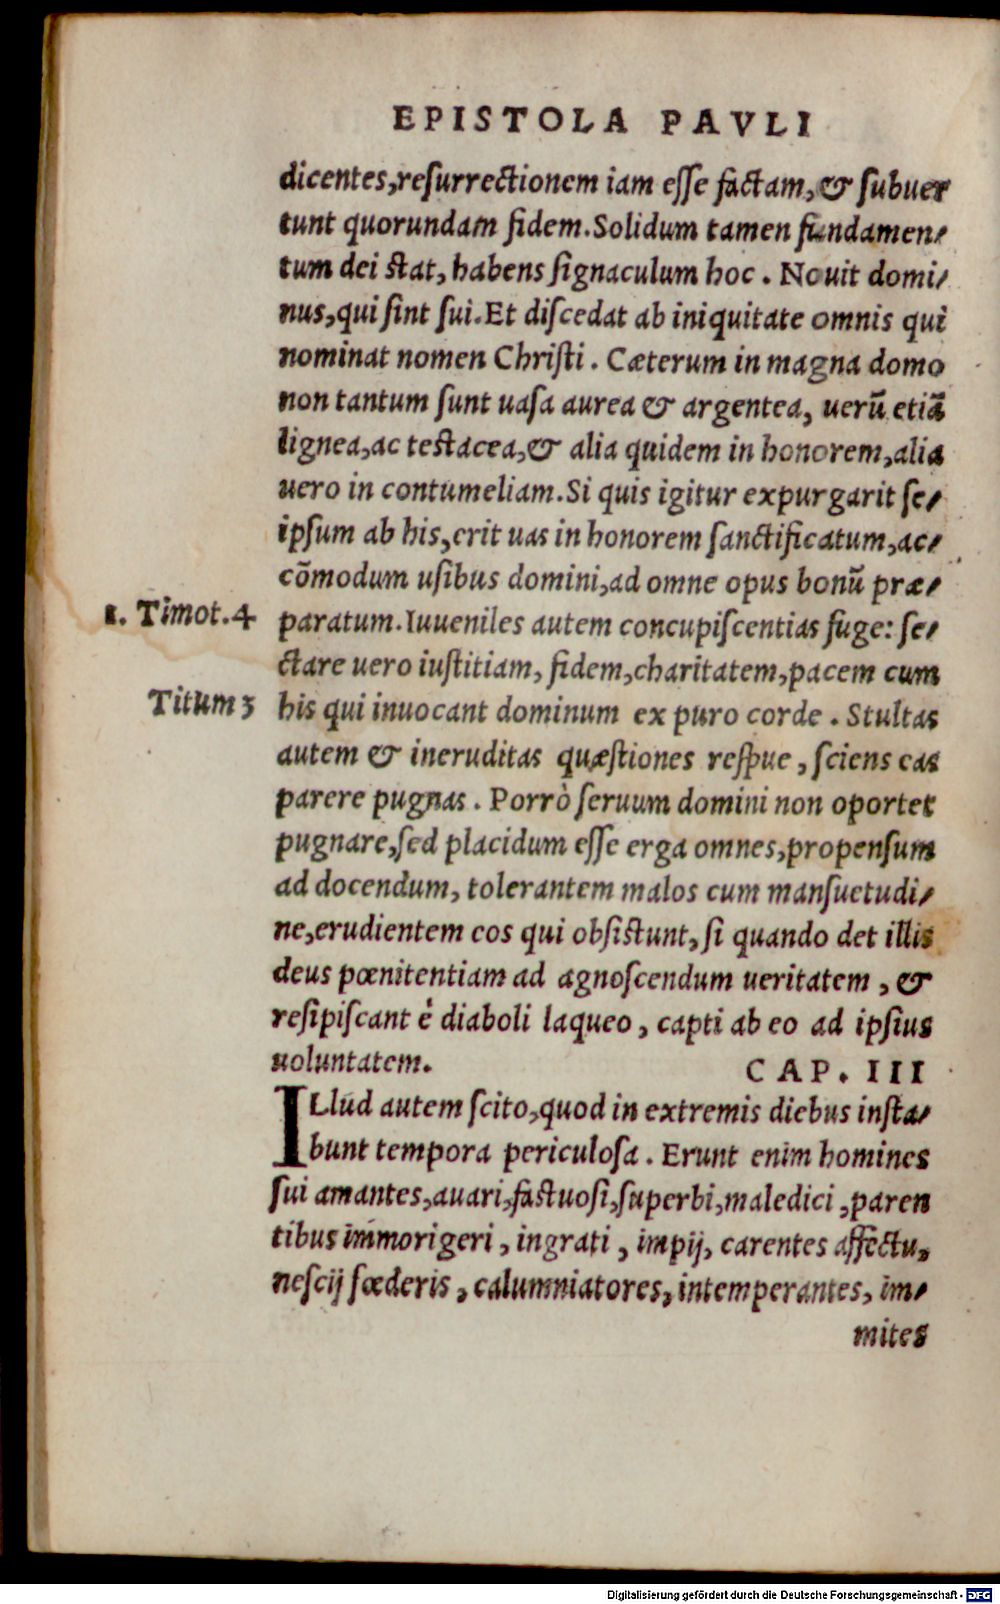 EPISTOLA PAVLI
dicentes,resurrectionem iam esse factam, & subuer
tunt quorundam fidem. Solidum tamen fundamen-
tum dei stat, habens signaculum hoc . Nouit domi-
nus, qui sint sui. Et discedat ab iniquitate omnis qui
nominat nomen Christi . Cæterum in magna domo
non tantum sunt uasa aurea & argentea, uerũ etiã
lignea, ac testacea, & alia quidem in honorem, alia
uero in contumeliam. Si quis igitur expurgarit se-
ipsum ab his, erit uas in honorem sanctificatum, ac-
cõmodum usibus domini, ad omne opus bonũ præ-
1. Timot. 4
paratum. Iuueniles autem concupiscentias fuge: se-
ctare uero iustitiam, fidem, charitatem, pacem cum
Titum 3
his qui inuocant dominum ex puro corde . Stultas
autem & ineruditas quæstiones respue , sciens eas
parere pugnas . Porrò seruum domini non oportet
pugnare, sed placidum esse erga omnes, propensum
ad docendum, tolerantem malos cum mansuetudi-
ne, erudientem eos qui obsistunt, si quando det illis
deus pœnitentiam ad agnoscendum ueritatem , &
resipiscant è diaboli laqueo , capti ab eo ad ipsius
uoluntatem.
CAP. III
ILlud autem scito, quod in extremis diebus insta-
bunt tempora periculosa . Erunt enim homines
sui amantes, auari, fastuosi, superbi, maledici , paren
tibus immorigeri , ingrati , impij, carentes affectu,
nescij fœderis , calumniatores, intemperantes, im-
mites
Digitalisierung gefördert durch die Deutsche Forschungsgemeinschaft - DFG